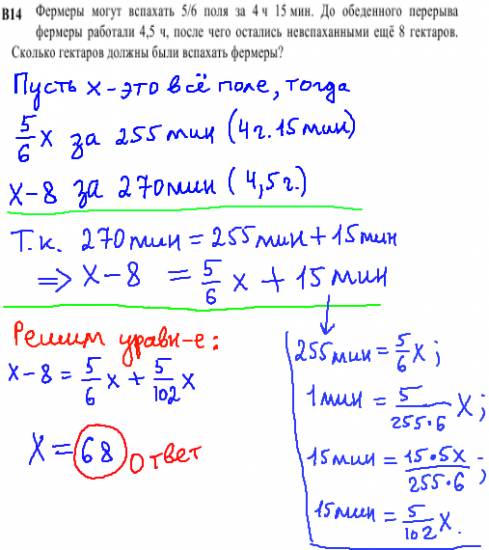 B14 Фермеры могут вспахать 5/6 поля за 4 ч 15 мин. До обеденного перерыва
фермеры работали 4,5 ч, после чего остались невспаханными ещё 8 гектаров.
Сколько гектаров должны были вспахать фермеры?
Пусть x - это всё поле, тогда
5/6 x за 255 мин (4г. 15 мин)
x-8 за 270 мин (4,5г.)
Т.к. 270 мин = 255 мин + 15 мин
=> x-8 = 5/6 x + 15 мин
Решим уравн-е:
x-8 = 5/6 x + 5/102 x
x = 68 Ответ
255 мин = 5/6 x;
1 мин = 5/255·6 x;
15 мин = 15·5x/255·6;
15 мин = 5/102 x.